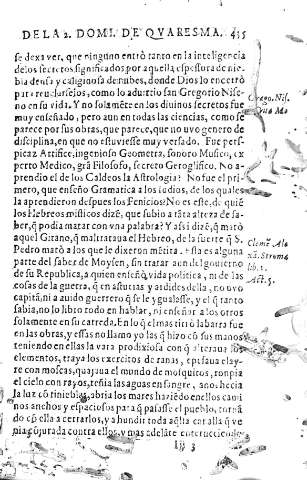 DE LA 2. DOMI. DE QVARESMA. 435
se dexa ver, que ninguno entrò tanto en la inteligencia
de los secretos significados por aquella espessura de nie-
bla densa y caliginosa de nubes, donde Dios lo encerrò
para reuelarsejos, como lo aduirtio san Gregorio Nise-
no en su vida. Y no solamẽte en los diuinos secretos fue
muy enseñado, pero aun en todas las ciencias, como se
parece por sus obras, que parece, que no uvo genero de
disciplina, en que no estuuiesse muy versado. Fue pers-
picaz Artifice, ingenioso Geometra, Sonoro Musico, ex
perto Medico, grã Filosofo, secreto Geroglifico. No a-
prendio el de los Caldeos la Astrologia? No fue el pri-
mero, que enseño Gramatica a los Iudios, de los quales
la aprendieron despues los Fenicios? No es este, de quiẽ
los Hebreos misticos dizẽ, que subio a tãta alteza de sa-
ber, q̃ podia matar con vna palabra? Y assi dizẽ, q̃ matò
aquel Gitano, q̃ maltrataua el Hebreo, de la suerte q̃ S.
Pedro matò a los que le dixeron mẽtira. Esta es alguna
parte del saber de Moysen, sin tratar aun del gouierno
de su Republica, a quien enseñò vida politica, ni de las
cosas de la guerra, q̃ en astucias y ardides della, no uvo
capitã, ni a auido guerrero q̃ se le ygualasse, y el q̃ tanto
sabia, no lo libro todo en hablar, ni enseñar a los otros
solamente en su catreda. En lo q̃ el mas tiro la barra fue
en las obras, y essas no llamo yo las q̃ hizo cõ sus manos
teniendo en ellas la vara prodixiosa con q̃ alteraua los
elementos, traya los exercitos de ranas, espessaua el ayre
con moscas, quajaua el mundo de mosquitos, rompia
el cielo con rayos, teñia las aguas en sangre, anochecia
la luz cõ tinieblas, abria los mares haziẽdo en ellos cami
nos anchos y espaciosos para q̃ passasse el pueblo, torna
dò cõ ella a cerrarlos, y a hundir toda aq̃lla canalla q̃ ve
nia cõjurada contra ellos, y mas adelãte enterneciendo
Grego. Nis.
Clemẽ Ale
xã. Stroma
lib. 1.
Act. 5.